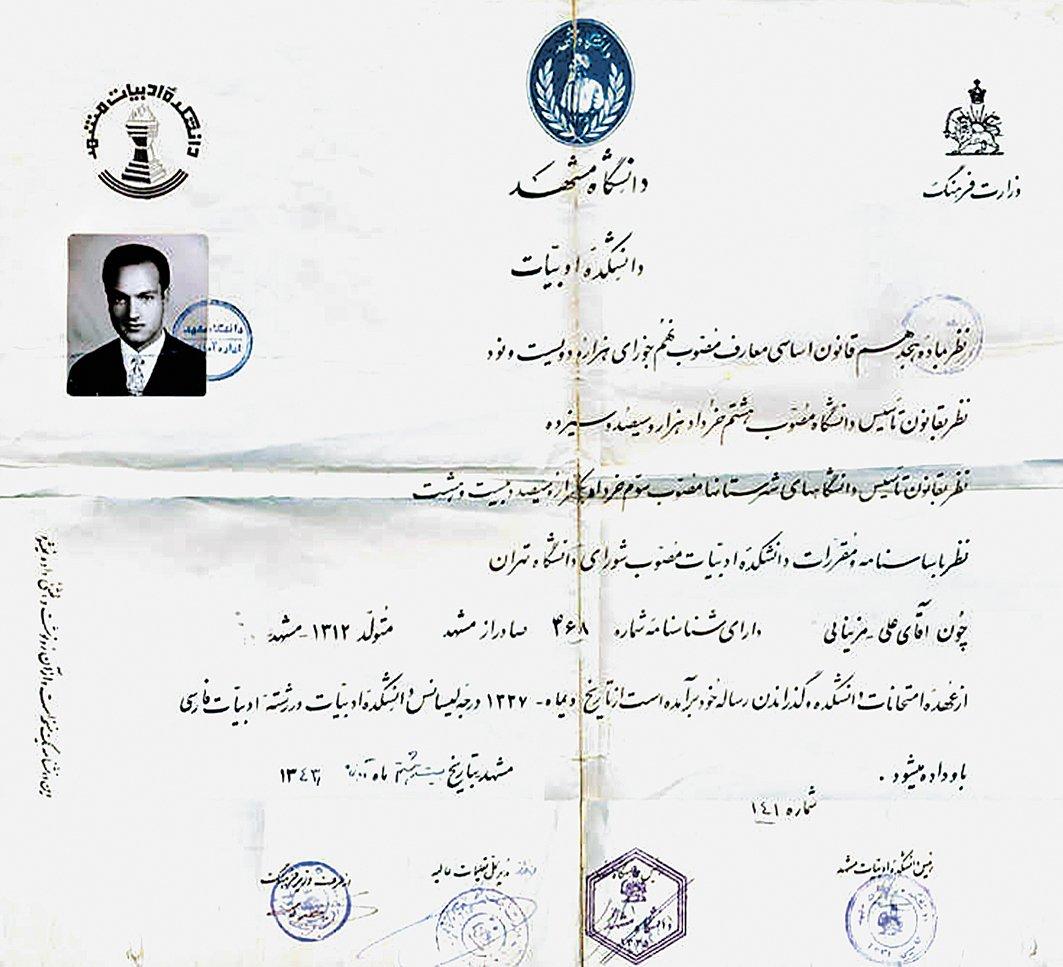 دانشکدهٔ ادبیات مشهد
دانشگاه مشهد
دانشگاه مشهد
وزارت فرهنگ
دانشکدهٔ ادبیات
دانشگاه مشهد
نظر بمادهٔ هیجدهم قانون اساسی معارف مصوب نهم جوزای هزار و دویست و نود
نظر بقانون تأسیس دانشگاه مصوب هشتم خرداد هزار و سیصد و سیزده
نظر بقانون تأسیس دانشگاههای شهرستانها مصوب سوم خرداد یکهزار و سیصد و بیست و هشت
نظر باساسنامه و مقررات دانشکدهٔ ادبیات مصوب شورای دانشگاه تهران
چون آقای علی - مزینانی دارای شناسنامه شماره ۴۶۸ صادر از مشهد متولد ۱۳۱۲ - مشهد
از عهدهٔ امتحانات دانشکده و گذراندن رساله خود برآمده است از تاریخ دیماه - ۱۳۳۷ درجه لیسانس دانشکدهٔ ادبیات در رشتهٔ ادبیات فارسی
باو داده میشود .
مشهد بتاریخ بیست و هشتم ماه ۱۳۴۳
شماره ۱۴۱
رئیس دانشکدهٔ ادبیات مشهد
رئیس دانشگاه
دانشگاه مشهد
مدیر کل تعلیمات عالیه
از طرف وزیر فرهنگ